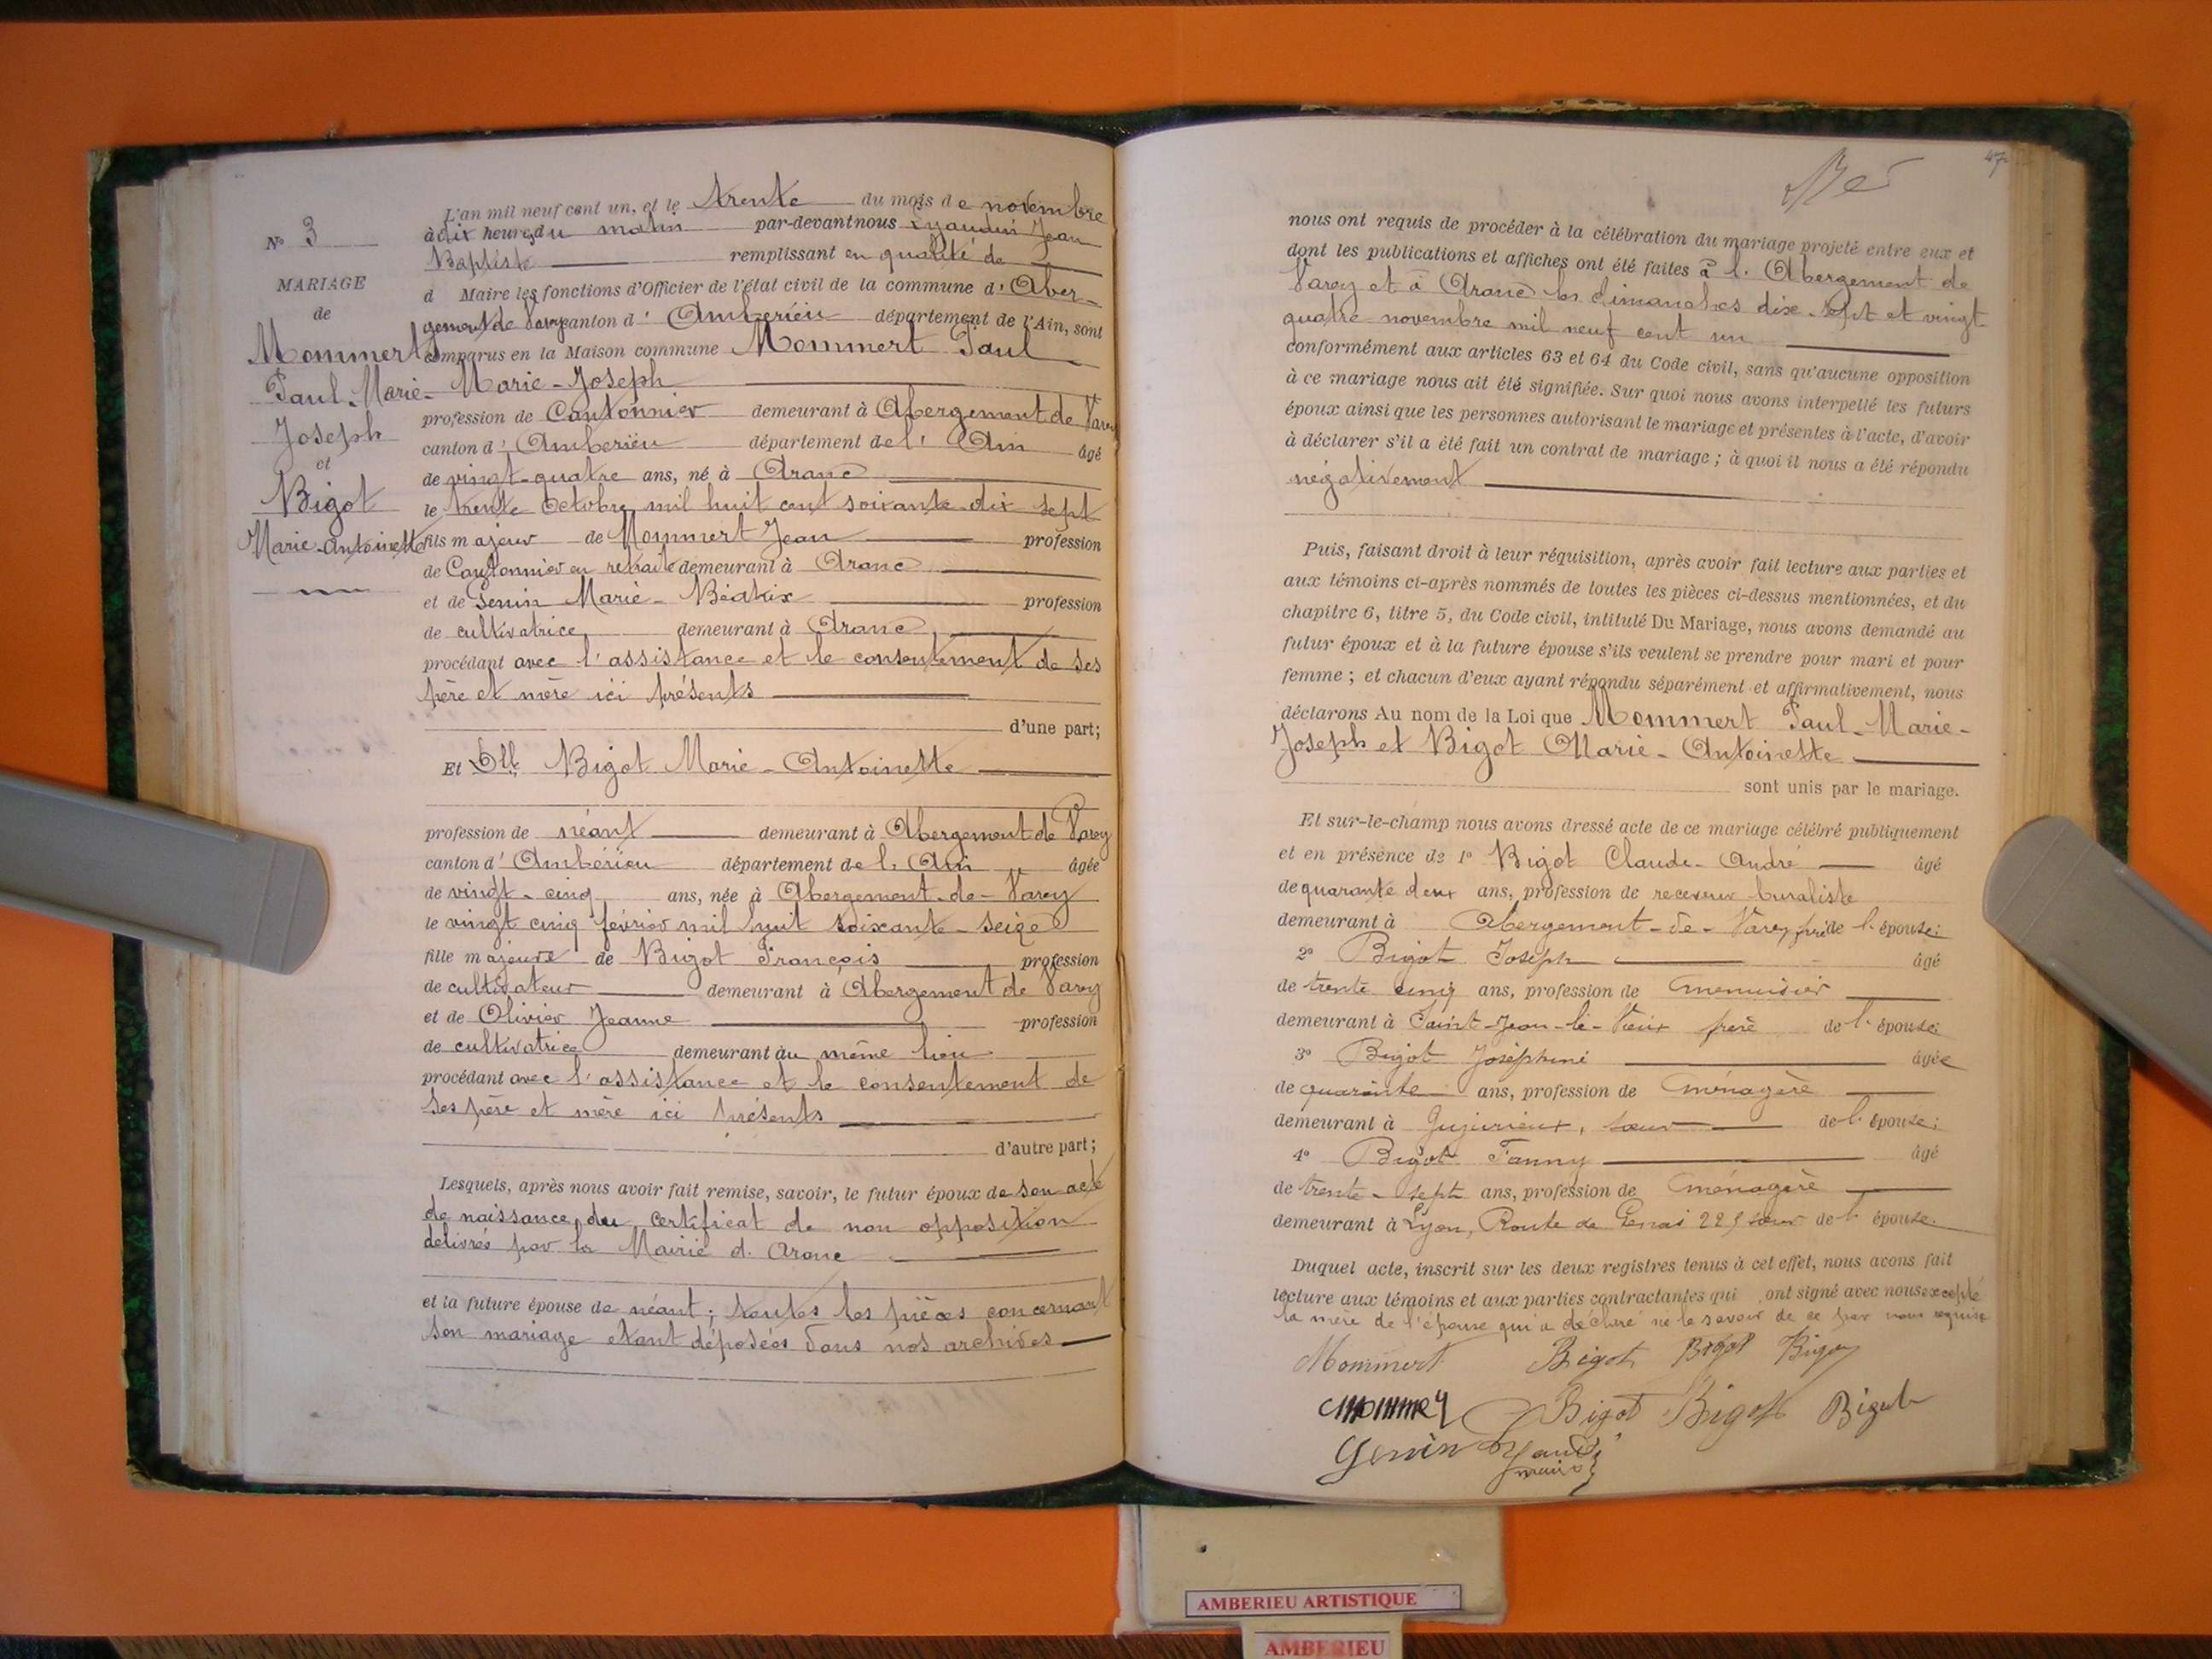 N° 3
MARIAGE
de
Mommert
Paul-Marie-
Joseph
et
Bigot
Marie-Antoinette
L'an mil neuf cent un, et le trente du mois de novembre
à dix heures du matin par-devant nous Jean
Baptiste remplissant en qualité de
d Maire les fonctions d'Officier de l'état civil de la commune d'Aber-
gement de Varey canton d'Ambérieu département de l'Ain, sont
comparus en la Maison commune Mommert Paul
Marie-Joseph
profession de Cantonnier demeurant à Abergement de Varey
canton d'Ambérieu département de l'Ain âgé
de vingt-quatre ans, né à Aranc
le trente Octobre mil huit cent soixante dix sept
fils majeur de Mommert Jean profession
de Cantonnier en retraite demeurant à Aranc
et de Genin Marie-Béatrix profession
de cultivatrice demeurant à Aranc
procédant avec l'assistance et le consentement de ses
père et mère ici présents
d'une part;
Et Dlle Bigot Marie-Antoinette
profession de néant demeurant à Abergement de Varey
canton d'Ambérieu département de l'Ain âgée
de vingt-cinq ans, née à Abergement-de-Varey
le vingt cinq février mil huit soixante-seize
fille majeure de Bigot François profession
de cultivateur demeurant à Abergement de Varey
et de Olivier Jeanne profession
de cultivatrice demeurant au même lieu
procédant avec l'assistance et le consentement de
ses père et mère ici présents
d'autre part;
Lesquels, après nous avoir fait remise, savoir, le futur époux de son acte
de naissance, du certificat de non opposition
délivrés par la Mairie d'Aranc
et la future épouse de néant; toutes les pièces concernant
son mariage étant déposées dans nos archives
47
nous ont requis de procéder à la célébration du mariage projeté entre eux et
dont les publications et affiches ont été faites à l'Abergement de
Varey et à Aranc les dimanches dix-sept et vingt-
quatre novembre mil neuf cent un
conformément aux articles 63 et 64 du Code civil, sans qu'aucune opposition
à ce mariage nous ait été signifiée. Sur quoi nous avons interpellé les futurs
époux ainsi que les personnes autorisant le mariage et présentes à l'acte, d'avoir
à déclarer s'il a été fait un contrat de mariage; à quoi il nous a été répondu
négativement
Puis, faisant droit à leur réquisition, après avoir fait lecture aux parties et
aux témoins ci-après nommés de toutes les pièces ci-dessus mentionnées, et du
chapitre 6, titre 5, du Code civil, intitulé Du Mariage, nous avons demandé au
futur époux et à la future épouse s'ils veulent se prendre pour mari et pour
femme; et chacun d'eux ayant répondu séparément et affirmativement, nous
déclarons Au nom de la Loi que Mommert Paul-Marie-
Joseph et Bigot Marie-Antoinette
sont unis par le mariage.
Et sur-le-champ nous avons dressé acte de ce mariage célébré publiquement
et en présence de 1° Bigot Claude-André âgé
de quarante deux ans, profession de receveur buraliste
demeurant à Abergement-de-Varey de l'épouse;
2° Bigot Joseph âgé
de trente cinq ans, profession de menuisier
demeurant à Saint-Jean-le-Vieux frère de l'épouse;
3° Bigot Joséphine âgée
de quarante ans, profession de ménagère
demeurant à Jujurieux, sœur de l'épouse;
4° Bigot Fanny âgé
de trente-sept ans, profession de ménagère
demeurant à Lyon, Route de Genas 22, sœur de l'épouse.
Duquel acte, inscrit sur les deux registres tenus à cet effet, nous avons fait
lecture aux témoins et aux parties contractantes qui ont signé avec nous excepté
la mère de l'épouse qui a déclaré ne le savoir de ce par nous requise
Mommert Bigot Bigot Bigot
Bigot Bigot Bigot
Genin
maire
AMBERIEU ARTISTIQUE
AMBERIEU